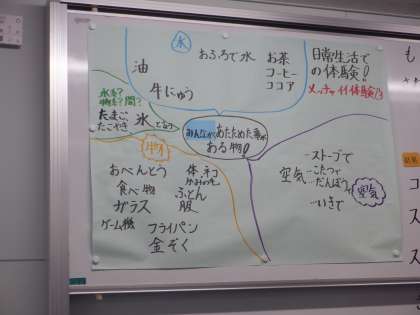 水
おふろで水
お茶
コーヒー
ココア
油
牛にゅう
日常生活で
の体験!
メッチャイイ体験!
氷を?
物を?間?
たまご
たこやき
氷
みんながあたためた事が
ある物!
物
おべんとう
食べ物
ガラス
ゲーム機
体 ネコ
ふとん
服
フライパン
金ぞく
空気
ストーブで
こたつで
だんぼう
いきで
空気
も
コ
ス
ス